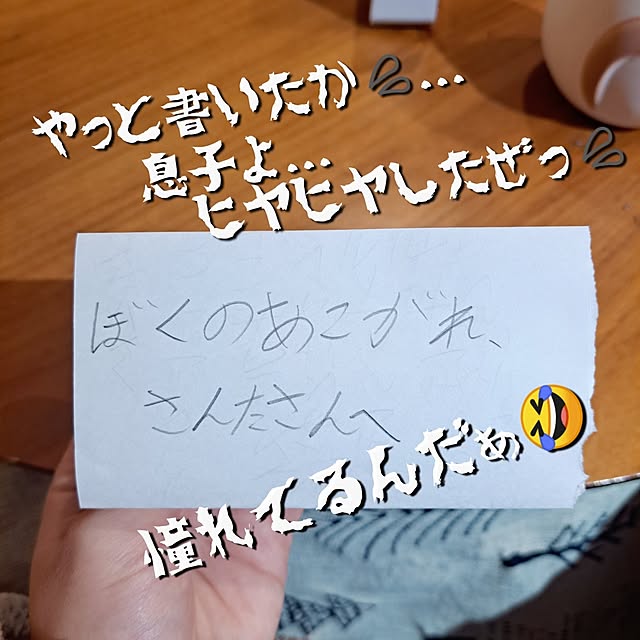 やっと書いたか💨...
息子よ...
ヒヤヒヤしたぜっ💨
ぼくのあこがれ、
さんたさんへ
憧れてるんだぁ🤣